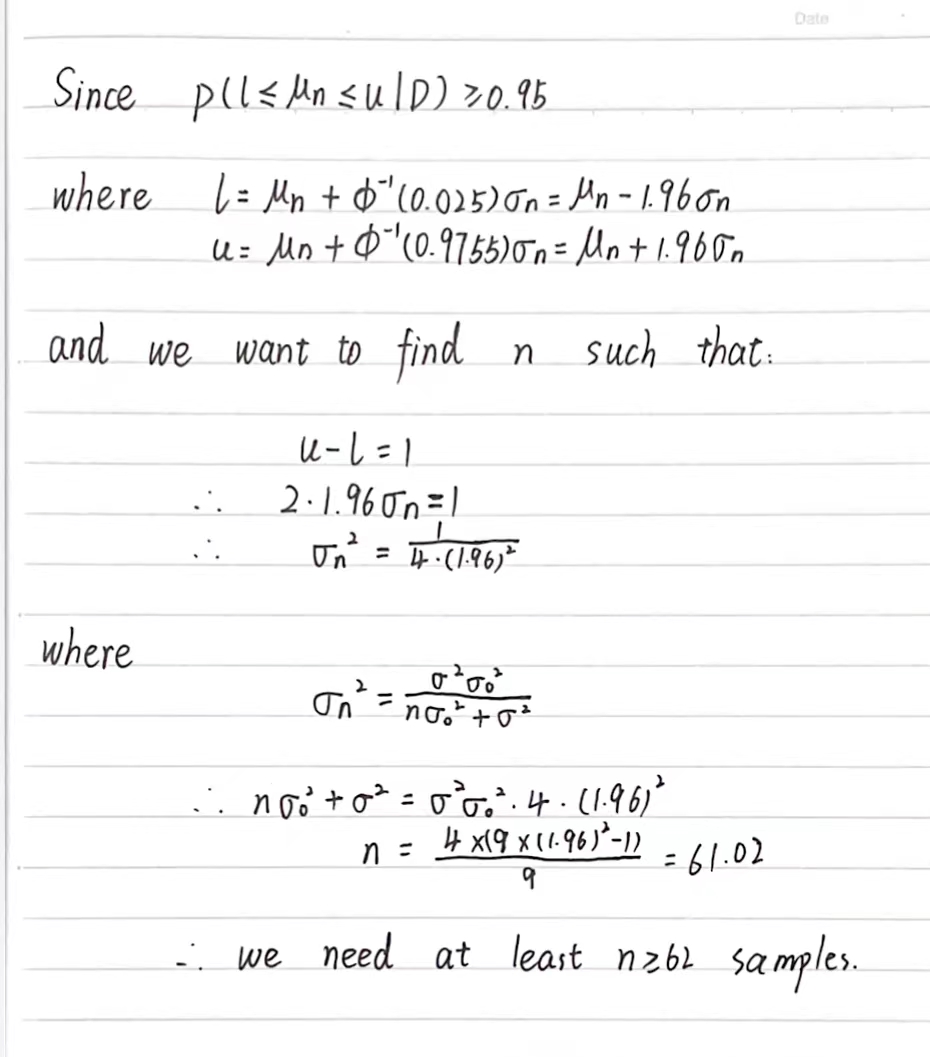 Date
Since p(l ≤ μn ≤ u | D) ≥ 0.95
where l = μn + Φ⁻¹(0.025)σn = μn - 1.96σn
u = μn + Φ⁻¹(0.9755)σn = μn + 1.96σn
and we want to find n such that:
u - l = 1
∴ 2 · 1.96 σn = 1
∴ σn² = 1 / 4 · (1.96)²
where
σn² = σ²σ₀² / nσ₀² + σ²
∴ nσ₀² + σ² = σ²σ₀² · 4 · (1.96)²
n = 4 × (9 × (1.96)² - 1) / 9 = 61.02
∴ we need at least n ≥ 62 samples.